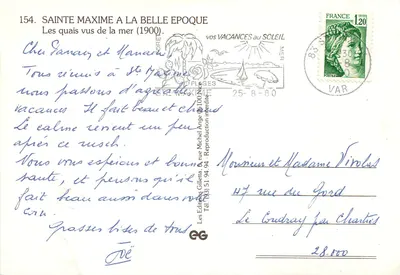 154. SAINTE MAXIME A LA BELLE EPOQUE
Les quais vus de la mer (1900).
Cher Parrain et Marraine
Tous réunis à Ste Maxime
nous passons d'agréables
vacances Il fait beau et chaud
Le calme revient un peu
après ce rush.
Vous vous espérons en bonne
santé, et pensons qu'il
fait beau aussi dans votre
coin.
Grosses bises de tous
Joë
VOS VACANCES AU SOLEIL
25-8-80
FRANCE
1,20
83 S
VAR
Les Editions Gilletta, 8, rue Michel Ange 06100 Nice
Tél. (93) 51.94.94 Reproduction interdite
EG
Monsieur et Madame
47 rue du Gord
Le Coudray par Chartres
28.000